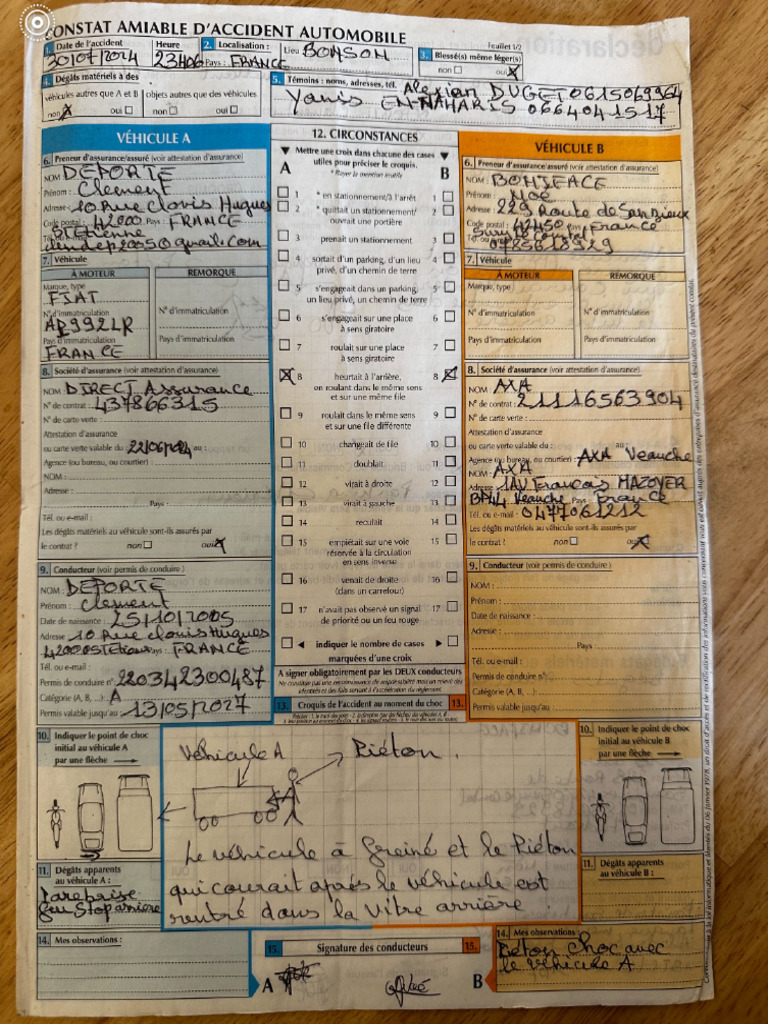 CONSTAT AMIABLE D'ACCIDENT AUTOMOBILE
Feuillet 1/2
1. Date de l'accident 30/07/2024 Heure 23H06
2. Localisation : Pays : FRANCE Lieu BONSON
3. Blessé(s) même léger(s) non oui X
4. Dégâts matériels à des
véhicules autres que A et B objets autres que des véhicules
non X oui non oui
5. Témoins : noms, adresses, tél. Alexian DUGET 0615069964
Yanis EN-NAHARIS 0664041517
VÉHICULE A
6. Preneur d'assurance/assuré (voir attestation d'assurance)
NOM : DEPORTE
Prénom : Clement
Adresse : 10 Rue Clovis Hugues
Code postal : 42000 Pays : FRANCE
St Etienne
clemdep2005@gmail.com
7. Véhicule
À MOTEUR REMORQUE
Marque, type
FIAT
N° d'immatriculation N° d'immatriculation
AP992LR
Pays d'immatriculation Pays d'immatriculation
FRANCE
8. Société d'assurance (voir attestation d'assurance)
NOM : DIRECT Assurance
N° de contrat : 437866315
N° de carte verte :
Attestation d'assurance
ou carte verte valable du : 22/06/2024 au :
Agence (ou bureau, ou courtier) :
NOM :
Adresse :
Pays :
Tél. ou e-mail :
Les dégâts matériels au véhicule sont-ils assurés par
le contrat ? non oui X
9. Conducteur (voir permis de conduire)
NOM : DEPORTE
Prénom : Clement
Date de naissance : 25/10/2005
Adresse : 10 Rue clovis Hugues
42000 St Etienne Pays : FRANCE
Tél. ou e-mail :
Permis de conduire n° : 220342300487
Catégorie (A, B, ...) : A
Permis valable jusqu'au : 13/05/2027
10. Indiquer le point de choc
initial au véhicule A
par une flèche
11. Dégâts apparents
au véhicule A :
Parebrise
feu Stop arrière
14. Mes observations :
12. CIRCONSTANCES
Mettre une croix dans chacune des cases
utiles pour préciser le croquis.
* Rayer la mention inutile
A B
1 * en stationnement/à l'arrêt 1
2 * quittait un stationnement/ 2
ouvrait une portière
3 prenait un stationnement 3
4 sortait d'un parking, d'un lieu 4
privé, d'un chemin de terre
5 s'engageait dans un parking, 5
un lieu privé, un chemin de terre
6 s'engageait sur une place 6
à sens giratoire
7 roulait sur une place 7
à sens giratoire
X 8 heurtait à l'arrière, 8 X
en roulant dans le même sens
et sur une même file
9 roulait dans le même sens 9
et sur une file différente
10 changeait de file 10
11 doublait 11
12 virait à droite 12
13 virait à gauche 13
14 reculait 14
15 empiétait sur une voie 15
réservée à la circulation
en sens inverse
16 venait de droite 16
(dans un carrefour)
17 n'avait pas observé un signal 17
de priorité ou un feu rouge
indiquer le nombre de cases
marquées d'une croix
A signer obligatoirement par les DEUX conducteurs
Ne constitue pas une reconnaissance de responsabilité mais un relevé des
identités et des faits servant à l'accélération du règlement
13. Croquis de l'accident au moment du choc 13.
Véhicule A
Piéton.
Le véhicule à freiné et le Piéton
qui courait après le véhicule est
rentré dans la vitre arrière.
15. Signature des conducteurs 15.
A B
VÉHICULE B
6. Preneur d'assurance/assuré (voir attestation d'assurance)
NOM : BONIFACE
Prénom : NOÉ
Adresse : 229 Route de
Code postal : 42450 Pays : France
Sury le Comtal
0785618929
7. Véhicule
À MOTEUR REMORQUE
Marque, type
N° d'immatriculation N° d'immatriculation
Pays d'immatriculation Pays d'immatriculation
8. Société d'assurance (voir attestation d'assurance)
NOM : AXA
N° de contrat : 21116563904
N° de carte verte :
Attestation d'assurance
ou carte verte valable du : au :
Agence (ou bureau, ou courtier) : AXA Veauche
NOM : AXA
Adresse : 1 AV. Francois MAZOYER
BP44 Veauche Pays : France
Tél. ou e-mail : 0477061212
Les dégâts matériels au véhicule sont-ils assurés par
le contrat ? non oui X
9. Conducteur (voir permis de conduire)
NOM :
Prénom :
Date de naissance :
Adresse :
Pays
Tél. ou e-mail :
Permis de conduire n° :
Catégorie (A, B, ...) :
Permis valable jusqu'au :
10. Indiquer le point de choc
initial au véhicule B
par une flèche
11. Dégâts apparents
au véhicule B :
14. Mes observations :
Piéton choc avec
le véhicule A